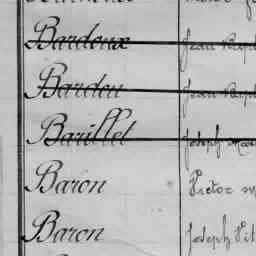 Bardoux Jean Bapt
Bardou Jean Bapt
Barillet Joseph
Baron Victor
Baron Joseph